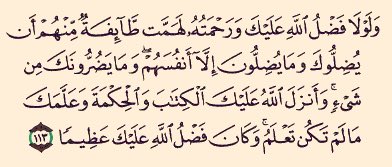 وَلَوْلَا فَضْلُ ٱللَّهِ عَلَيْكَ وَرَحْمَتُهُۥ لَهَمَّت طَّآئِفَةٌ مِّنْهُمْ أَن
يُضِلُّوكَ وَمَا يُضِلُّونَ إِلَّآ أَنفُسَهُمْ ۖ وَمَا يَضُرُّونَكَ مِن
شَىْءٍ ۚ وَأَنزَلَ ٱللَّهُ عَلَيْكَ ٱلْكِتَٰبَ وَٱلْحِكْمَةَ وَعَلَّمَكَ
مَا لَمْ تَكُن تَعْلَمُ ۚ وَكَانَ فَضْلُ ٱللَّهِ عَلَيْكَ عَظِيمًا ١١٣